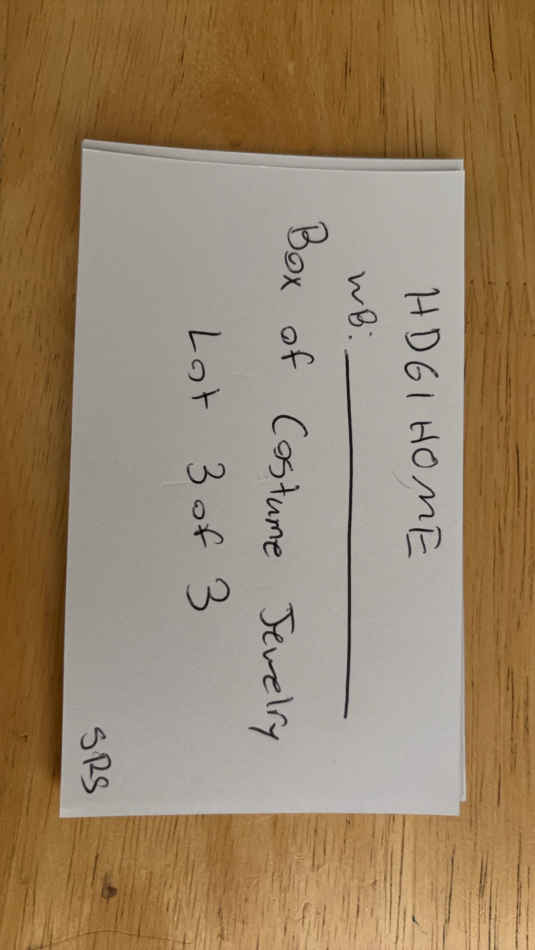 HDG1 HOME
WB: ____________________
Box of Costume Jewelry
Lot 3 of 3
SRS